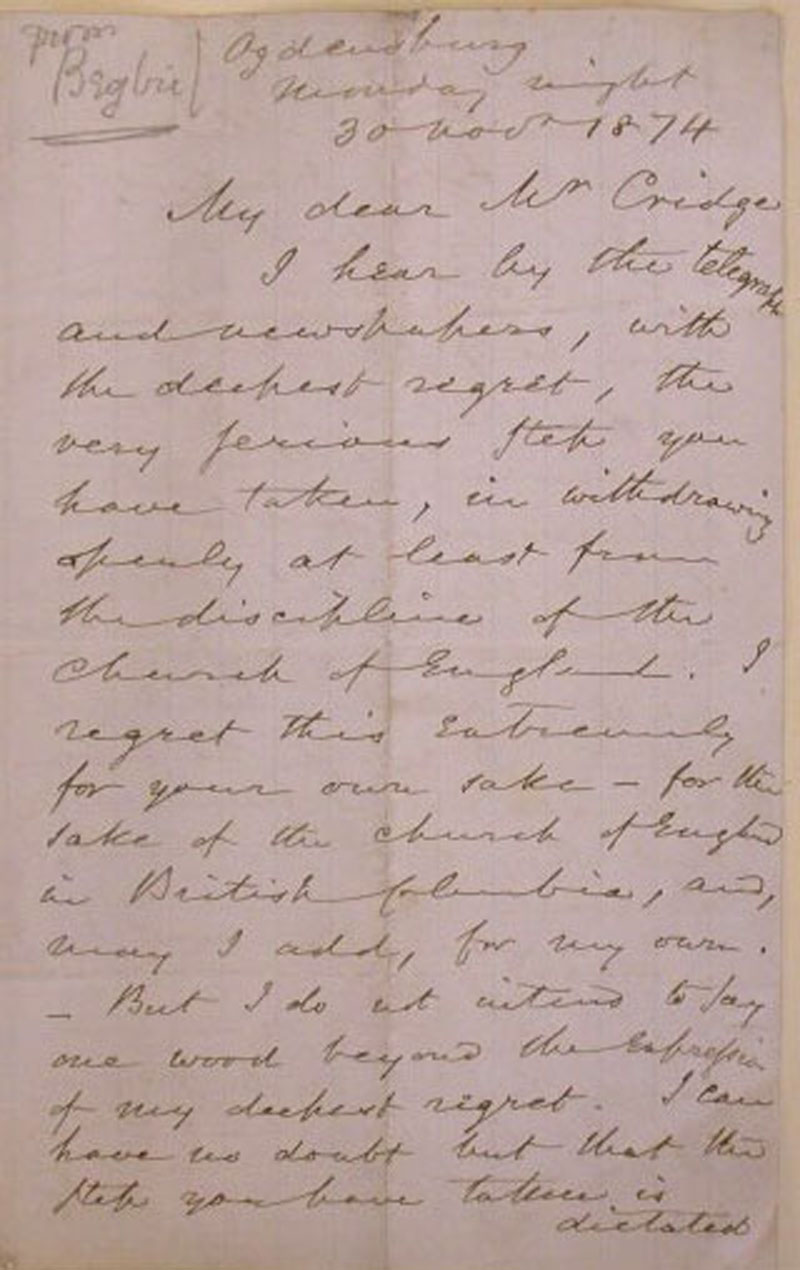 from
Begbie
Ogdensburg
Monday night
30 Novr 1874
My dear Mr Cridge
I hear by the telegraph
and newspapers, with
the deepest regret, the
very serious step you
have taken, in withdrawing
openly at least from
the discipline of the
Church of England. I
regret this extremely
for your own sake - for the
sake of the church of England
in British Columbia, and,
may I add, for my own.
- But I do not intend to say
one word beyond the expression
of my deepest regret. I can
have no doubt but that the
step you have taken is
dictated